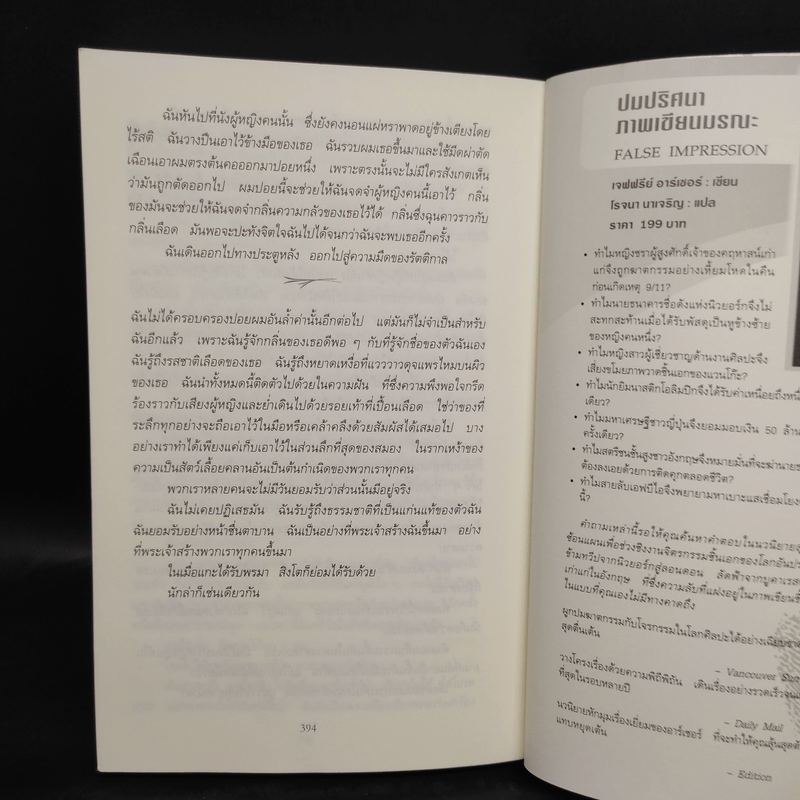 ฉันหันไปที่นังผู้หญิงคนนั้น ซึ่งยังคงนอนแผ่หราพาดอยู่ข้างเตียงโดย
ไร้สติ ฉันวางปืนเอาไว้ข้างมือของเธอ ฉันรวบผมเธอขึ้นมาและใช้มีดผ่าตัด
เฉือนเอาผมตรงต้นคอออกมาปอยหนึ่ง เพราะตรงนั้นจะไม่มีใครสังเกตเห็น
ว่ามันถูกตัดออกไป ผมปอยนี้จะช่วยให้ฉันจดจำผู้หญิงคนนี้เอาไว้ กลิ่น
ของมันจะช่วยให้ฉันจดจำกลิ่นความกลัวของเธอไว้ได้ กลิ่นซึ่งฉุนคาวราวกับ
กลิ่นเลือด มันพอจะปะทังจิตใจฉันไปได้จนกว่าฉันจะพบเธออีกครั้ง
ฉันเดินออกไปทางประตูหลัง ออกไปสู่ความมืดของรัตติกาล
ฉันไม่ได้ครอบครองปอยผมอันล้ำค่านั้นอีกต่อไป แต่มันก็ไม่จำเป็นสำหรับ
ฉันอีกแล้ว เพราะฉันรู้จักกลิ่นของเธอดีพอ ๆ กับที่รู้จักชื่อของตัวฉันเอง
ฉันรู้ถึงรสชาติเลือดของเธอ ฉันรู้ถึงหยาดเหงื่อที่แวววาวดุจแพรไหมบนผิว
ของเธอ ฉันนำทั้งหมดนี้ติดตัวไปด้วยในความฝัน ที่ซึ่งความพึงพอใจกรีด
ร้องราวกับเสียงผู้หญิงและย่ำเดินไปด้วยรอยเท้าที่เปื้อนเลือด ใช่ว่าของที่
ระลึกทุกอย่างจะถือเอาไว้ในมือหรือเคล้าคลึงด้วยสัมผัสได้เสมอไป บาง
อย่างเราทำได้เพียงแค่เก็บเอาไว้ในส่วนลึกที่สุดของสมอง ในรากเหง้าของ
ความเป็นสัตว์เลื้อยคลานอันเป็นต้นกำเนิดของพวกเราทุกคน
พวกเราหลายคนจะไม่มีวันยอมรับว่าส่วนนั้นมีอยู่จริง
ฉันไม่เคยปฏิเสธมัน ฉันรับรู้ถึงธรรมชาติที่เป็นแก่นแท้ของตัวฉัน
ฉันยอมรับอย่างหน้าชื่นตาบาน ฉันเป็นอย่างที่พระเจ้าสร้างฉันขึ้นมา อย่าง
ที่พระเจ้าสร้างพวกเราทุกคนขึ้นมา
ในเมื่อแกะได้รับพรมา สิงโตก็ย่อมได้รับด้วย
นักล่าก็เช่นเดียวกัน
394
ปมปริศนา
ภาพเขียนมรณะ
FALSE IMPRESSION
เจฟฟรีย์ อาร์เชอร์ : เขียน
โรจนา นาเจริญ : แปล
ราคา 199 บาท
• ทำไมหญิงชราผู้สูงศักดิ์เจ้าของคฤหาสน์เก่า
แก่จึงถูกฆาตกรรมอย่างเหี้ยมโหดในคืน
ก่อนเกิดเหตุ 9/11?
• ทำไมนายธนาคารชื่อดังแห่งนิวยอร์กจึงไม่
สะทกสะท้านเมื่อได้รับพัสดุเป็นหูข้างซ้าย
ของหญิงคนหนึ่ง?
• ทำไมหญิงสาวผู้เชี่ยวชาญด้านงานศิลปะจึง
เสี่ยงขโมยภาพวาดชิ้นเอกของแวนโก๊ะ?
• ทำไมนักยิมนาสติกโอลิมปิกจึงได้รับค่าเหนื่อยถึงหนึ่
เดียว?
• ทำไมมหาเศรษฐีชาวญี่ปุ่นจึงยอมมอบเงิน 50 ล้าน
ครั้งเดียว?
• ทำไมสตรีชนชั้นสูงชาวอังกฤษจึงหมายมั่นที่จะฆ่านายธ
ต้องลงเอยด้วยการติดคุกตลอดชีวิต?
• ทำไมสายลับเอฟบีไอจึงพยายามหาเบาะแสเชื่อมโยง
นี้?
คำถามเหล่านี้รอให้คุณค้นหาคำตอบในนวนิยาย
ซ้อนแผนเพื่อช่วงชิงงานจิตรกรรมชิ้นเอกของโลกอัน
ข้ามทวีปจากนิวยอร์กสู่ลอนดอน ลัดฟ้าจากบูคาเรส
เก่าแก่ในอังกฤษ ที่ซึ่งความลับที่แฝงอยู่ในภาพเขียน
ในแบบที่คุณเองไม่มีทางคาดถึง
ผูกปมฆาตกรรมกับโจรกรรมในโลกศิลปะได้อย่างเฉียบขาด
สุดตื่นเต้น
– Vancouver Sun
วางโครงเรื่องด้วยความพิถีพิถัน เดินเรื่องอย่างรวดเร็ว
ที่สุดในรอบหลายปี
– Daily Mail
นวนิยายหักมุมเรื่องเยี่ยมของอาร์เชอร์ ที่จะทำให้คุณลุ้นสุดตั
แทบหยุดเต้น
– Edition